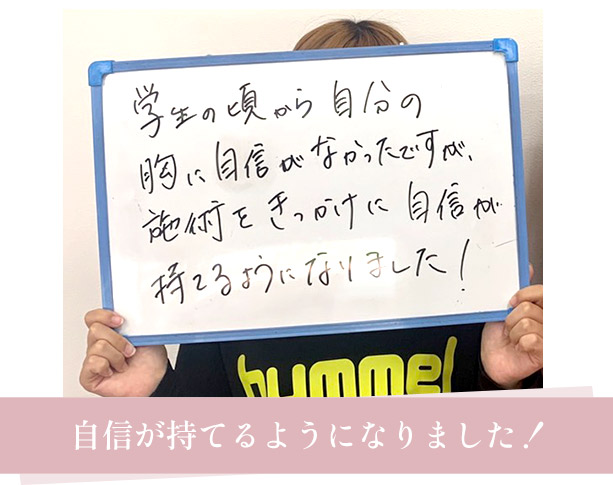 学生の頃から自分の
胸に自信がなかったですが、
施術をきっかけに自信が
持てるようになりました!
hummel
自信が持てるようになりました!